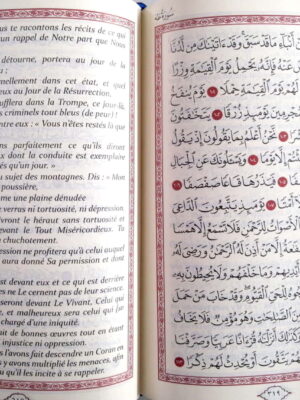 us te racontons les récits de ce qui
un rappel de Notre part que Nous
détourne, portera au jour de la
nellement dans cet état, et quel
u Jour de la Résurrection,
ufflera dans la Trompe, ce jour-là,
s criminels tout bleus (de peur)!
entre eux : « Vous n'êtes restés là que
ons parfaitement ce qu'ils diront
dont la conduit est exemplaire
stés qu'un jour. »
u sujet des montagnes. Dis : « Mon
poussière,
me une plaine dénudée
e verras ni tortuosité, ni dépression
ivront le héraut sans tortuosité et
levant le Tout Miséricordieux. Tu
chuchotement.
on ne profitera qu'à celui auquel
aura donné Sa permission et dont
est devant eux et ce qui est derrière
es ne Le cernent pas de leur science.
seront devant Le Vivant, Celui qui
e, et malheureux sera celui qui fut
chargé d'une iniquité.
it de bonnes œuvres tout en étant
injustice ni oppression.
l'avons fait descendre un Coran en
s y avons multiplié les menaces, afin
u qu'il les incite à se rappeler.
سورة طه
أَنْبَاءِ مَا قَدْ سَبَقَ وَقَدْ ءَاتَيْنَٰكَ مِن لَّدُنَّا
عَنْهُ فَإِنَّهُ يَحْمِلُ يَوْمَ ٱلْقِيَٰمَةِ وِزْرًا
يَوْمَ ٱلْقِيَٰمَةِ حِمْلًا ١٠١ يَوْمَ يُنفَخُ
ٱلْمُجْرِمِينَ يَوْمَئِذٍ زُرْقًا ١٠٢ يَتَخَٰفَتُونَ
١٠٣ نَّحْنُ أَعْلَمُ بِمَا يَقُولُونَ إِذْ يَقُولُ
١٠٤ وَيَسْـَٔلُونَكَ عَنِ ٱلْجِبَالِ
١٠٥ فَيَذَرُهَا قَاعًا صَفْصَفًا ١٠٦
١٠٧ يَوْمَئِذٍ يَتَّبِعُونَ ٱلدَّاعِيَ
ٱلْأَصْوَاتُ لِلرَّحْمَٰنِ فَلَا تَسْمَعُ إِلَّا هَمْسًا
ٱلشَّفَٰعَةُ إِلَّا مَنْ أَذِنَ لَهُ ٱلرَّحْمَٰنُ وَرَضِيَ لَهُ
أَيْدِيهِمْ وَمَا خَلْفَهُمْ وَلَا يُحِيطُونَ بِهِ
لِلْحَيِّ ٱلْقَيُّومِ وَقَدْ خَابَ مَنْ حَمَلَ
ٱلصَّٰلِحَٰتِ وَهُوَ مُؤْمِنٌ فَلَا يَخَافُ
أَنزَلْنَٰهُ قُرْءَانًا عَرَبِيًّا وَصَرَّفْنَا
يَتَّقُونَ أَوْ يُحْدِثُ لَهُمْ ذِكْرًا ١١٣
٣١٩